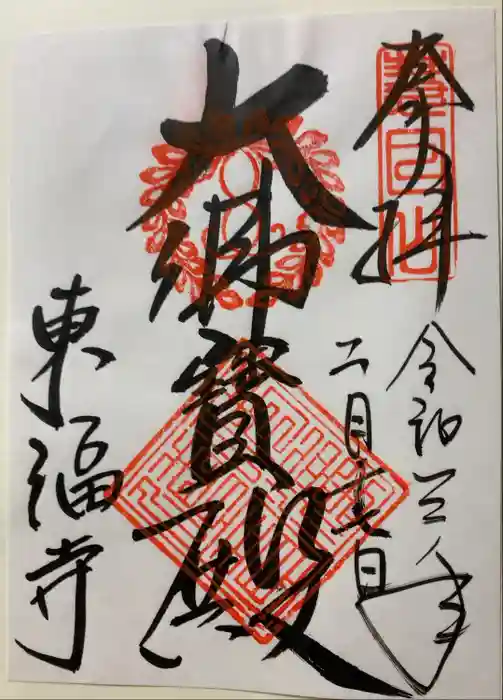 奉拝
慧日山
令和三年
二月十六日
大佛寶殿
東福寺